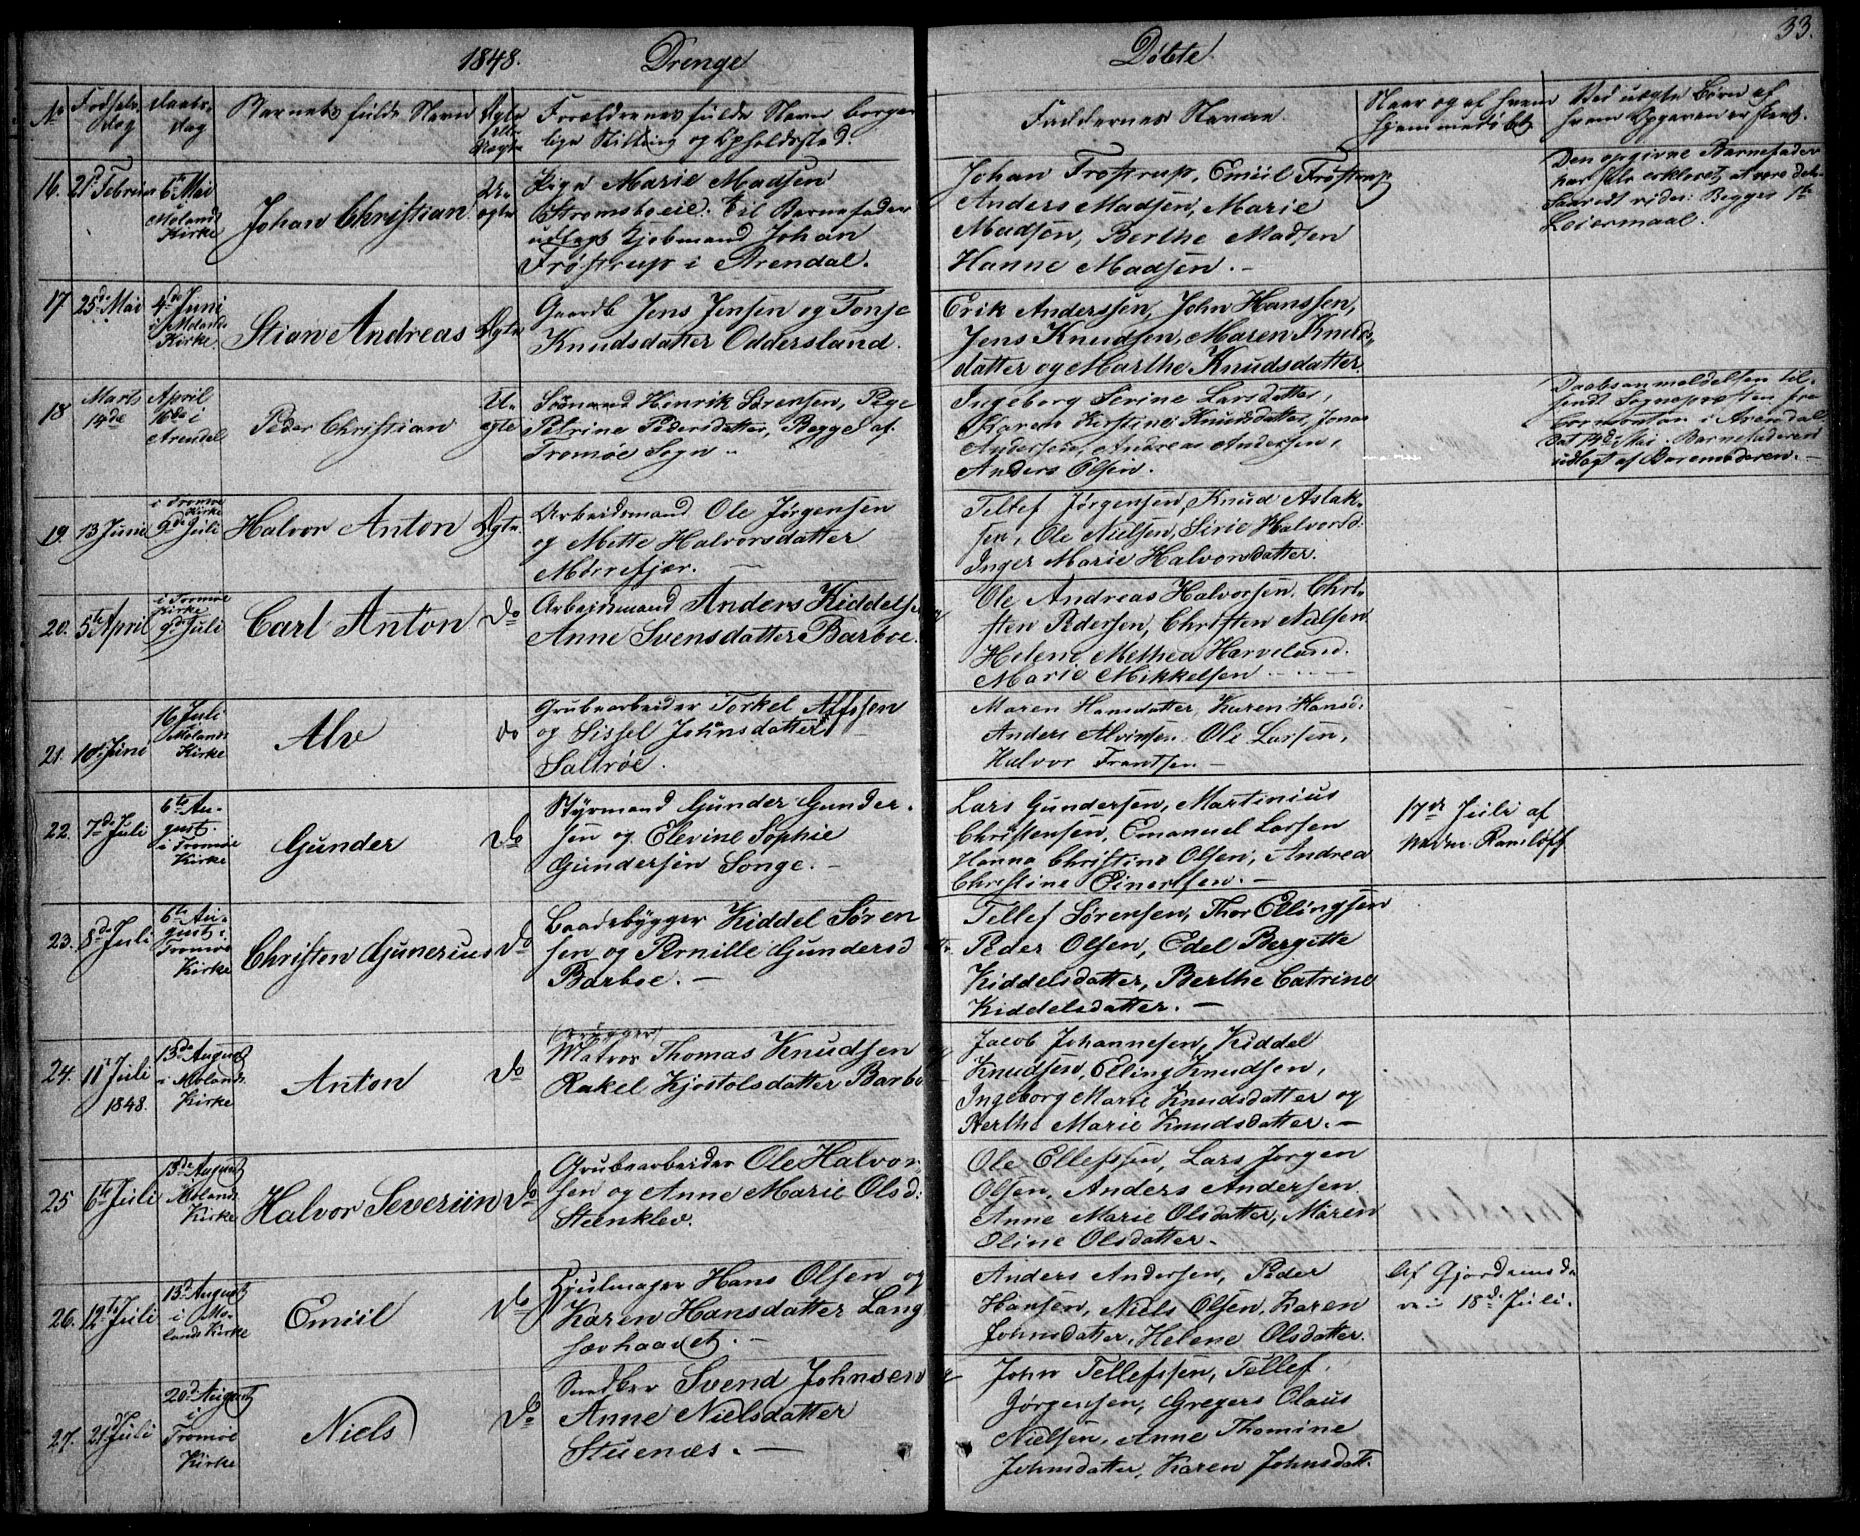 1848. Drenge Döbte. 33.
No Fødsels Dag Daabs- dag Barnets fulde Navn Ægte eller Uægte Forældrenes fulde Navn borger-
lige Stilling og Opholdssted.
Faddernes Navne. Naar og af hvem hjemmedøbt Ved uægte Børn af
hvem Opgaven er skeet.
16. 21 Februar 6te Mai Molands Kirke Johan Christian. U- ægte
Pige Marie Madsen
Strømsboeie. Til Barnefader
udlagt Kjøbmand Johan
Frøstrup i Arendal.
Johan Frøstrup, Emiil Frøstrup
Anders Madsen, Marie
Madsen, Berthe Madsen
Hanne Madsen. -
Den opgivne Barnefader
har selv erkleret at være
Begges 1te
Leiermaal.
17 25de Mai 4de Juni i Molands Kirke. Stian Andreas Ægte
Gaardb Jens Jensen og Tonje
Knudsdatter Oddersland.
Erik Anderssen, John Hanssen,
Jens Knudsen, Maren Knuds-
datter og Marthe Knudsdatter
18 Marts 14de April 16de i Arendal Peder Christian U- ægte
Sømand Henrik Sørensen, Pige
Petrine Pedersdatter, Begge af
Tromøe Sogn -
Ingeborg Serine Larsdatter,
Karen Kirstine Knudsdatter, Jonas
Andersen, Andreas Andersen,
Anders Olsen.
Daabsanmeldelsen til-
sendt Sognepresten fra
i Arendal
dat 14de Mai. Barnefaderen
udlagt af Barnemoderen. -
19 13 Juni i Tromøe Kirke 9de Juli Halvor Anton Ægte.
Arbeidsmand Ole Jørgensen
og Mette Halvorsdatter
Mørrefjær. -
Tellef Jørgensen, Knud Aslak-
sen, Ole Nielsen, Sirie Halvorsd:
Inger Marie Halvorsdatter.
20. 5te April i Tromøe Kirke 9de Juli Carl Anton Do
Arbeidsmand Anders Kiddelsen
Anne Svensdatter Barboe.
Ole Andreas Halvorsen, Chri-
sten Pedersen, Christen Nielsen
Helene Methea Harveland.
Marie Mikkelsen
21. 10de Juni 16 Juli Molands Kirke Alv do
Grubearbeider Torkel Alfssen
og Sissel Johnsdatter
Saltrøe.
Maren Hansdatter, Karen Hansd:
Anders Alvinsen. Ole Larsen,
Halvor Frantsen -
22. 7de Juli 6te Au- gust. i Tromøe Kirke Gunder Do
Styrmand Gunder Gunder-
sen og Elevine Sophie
Gundersen Songe. -
Lars Gundersen, Martinius
Christensen, Emanuel Larsen
Hanna Christine Olsen, Andrea
Christine Einertsen. -
17de Juli af
Ramløff
23. 8de Juli 6te Au- gust i Tromøe Kirke Christen Gunerius Do
Baadebygger Kiddel Søren
sen og Pernille Gundersd
Barboe. -
Tellef Sørensen, Thor Ellingsen
Peder Olsen, Edel Bergitte
Kiddelsdatter, Berthe Catrine
Kiddelsdatter. -
24. 11te Juli 1848. 13de August i Molands Kirke Anton Do
Matros Thomas Knudsen
Rakel Kjostolsdatter Barbo
Jacob Johannesen, Kiddel
Knudsen, Elling Knudsen,
Ingeborg Marie Knudsdatter og
Berthe Marie Knudsdatter. -
25 6te Juli 13de August i Molands Kirke Halvor Severiin Do
Grubearbeider Ole Halvor-
sen og Anne Marie Olsd:
Steenklev.
Ole Ellefssen, Lars Jørgen
Olsen, Anders Andersen.
Anne Marie Olsdatter, Maren
Oline Olsdatter.
26. 12te Juli 13de August i Mo- lands Kirke Emiil Do
Hjulmager Hans Olsen og
Karen Hansdatter Lang
sævhaavet. -
Anders Andersen, Peder
Hansen, Niels Olsen, Karen
Johnsdatter, Helene Olsdatter.
Af
18de Juli.
27. 21de Juli 20de August i Tromøe Kirke Niels Do
Svend Johnsen
Anne Nielsdatter
Stuenæs. -
John Tellefssen, Tellef
Jørgensen, Gregers Olaus
Nielsen, Anne Thomine
Johnsdatter, Karen Johnsdatt.